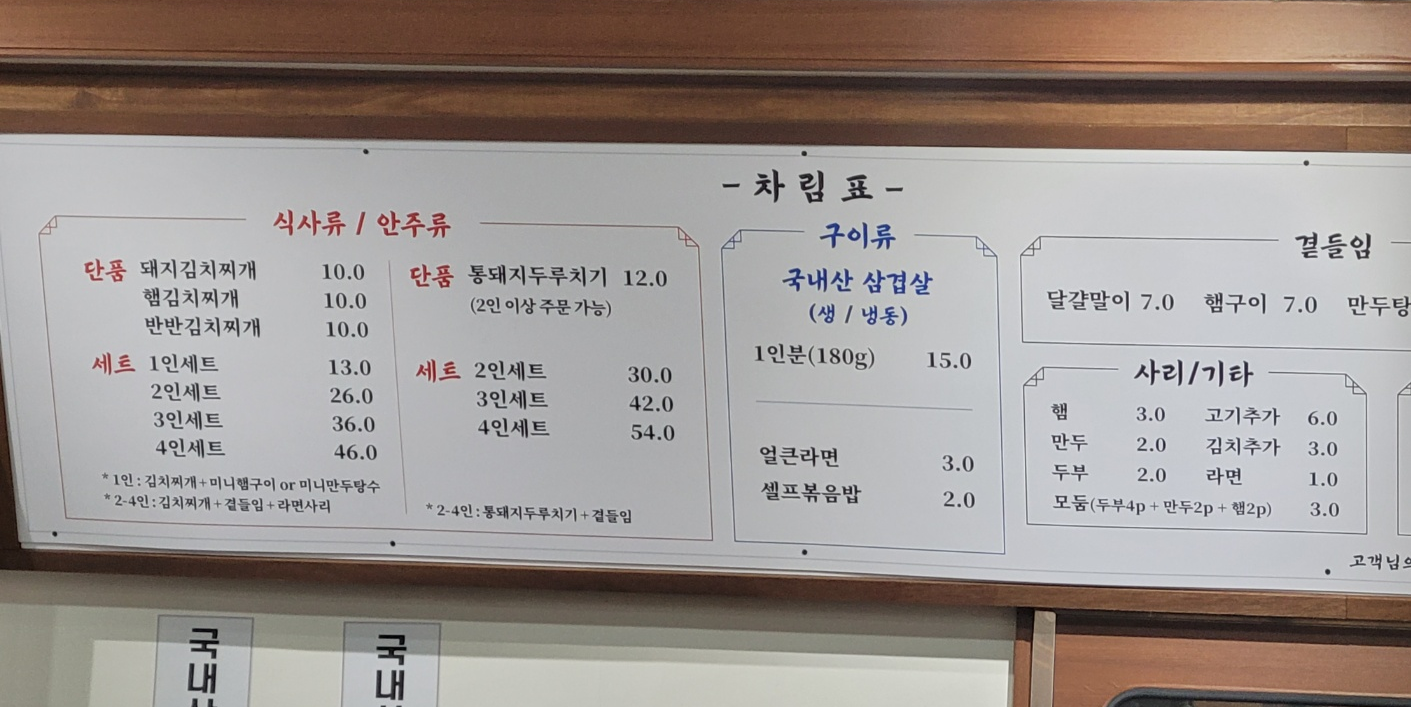 - 차림표 -
식사류 / 안주류
단품 돼지김치찌개 10.0
햄김치찌개 10.0
반반김치찌개 10.0
세트 1인세트 13.0
2인세트 26.0
3인세트 36.0
4인세트 46.0
* 1인 : 김치찌개 + 미니햄구이 or 미니만두탕수
* 2-4인 : 김치찌개 + 곁들임 + 라면사리
단품 통돼지두루치기 12.0
(2인 이상 주문 가능)
세트 2인세트 30.0
3인세트 42.0
4인세트 54.0
* 2-4인 : 통돼지두루치기 + 곁들임
구이류
국내산 삼겹살
(생 / 냉동)
1인분(180g) 15.0
얼큰라면 3.0
셀프볶음밥 2.0
곁들임
달걀말이 7.0 햄구이 7.0 만두탕
사리/기타
햄 3.0 고기추가 6.0
만두 2.0 김치추가 3.0
두부 2.0 라면 1.0
모둠(두부4p + 만두2p + 햄2p) 3.0
고객님의
국내
국내